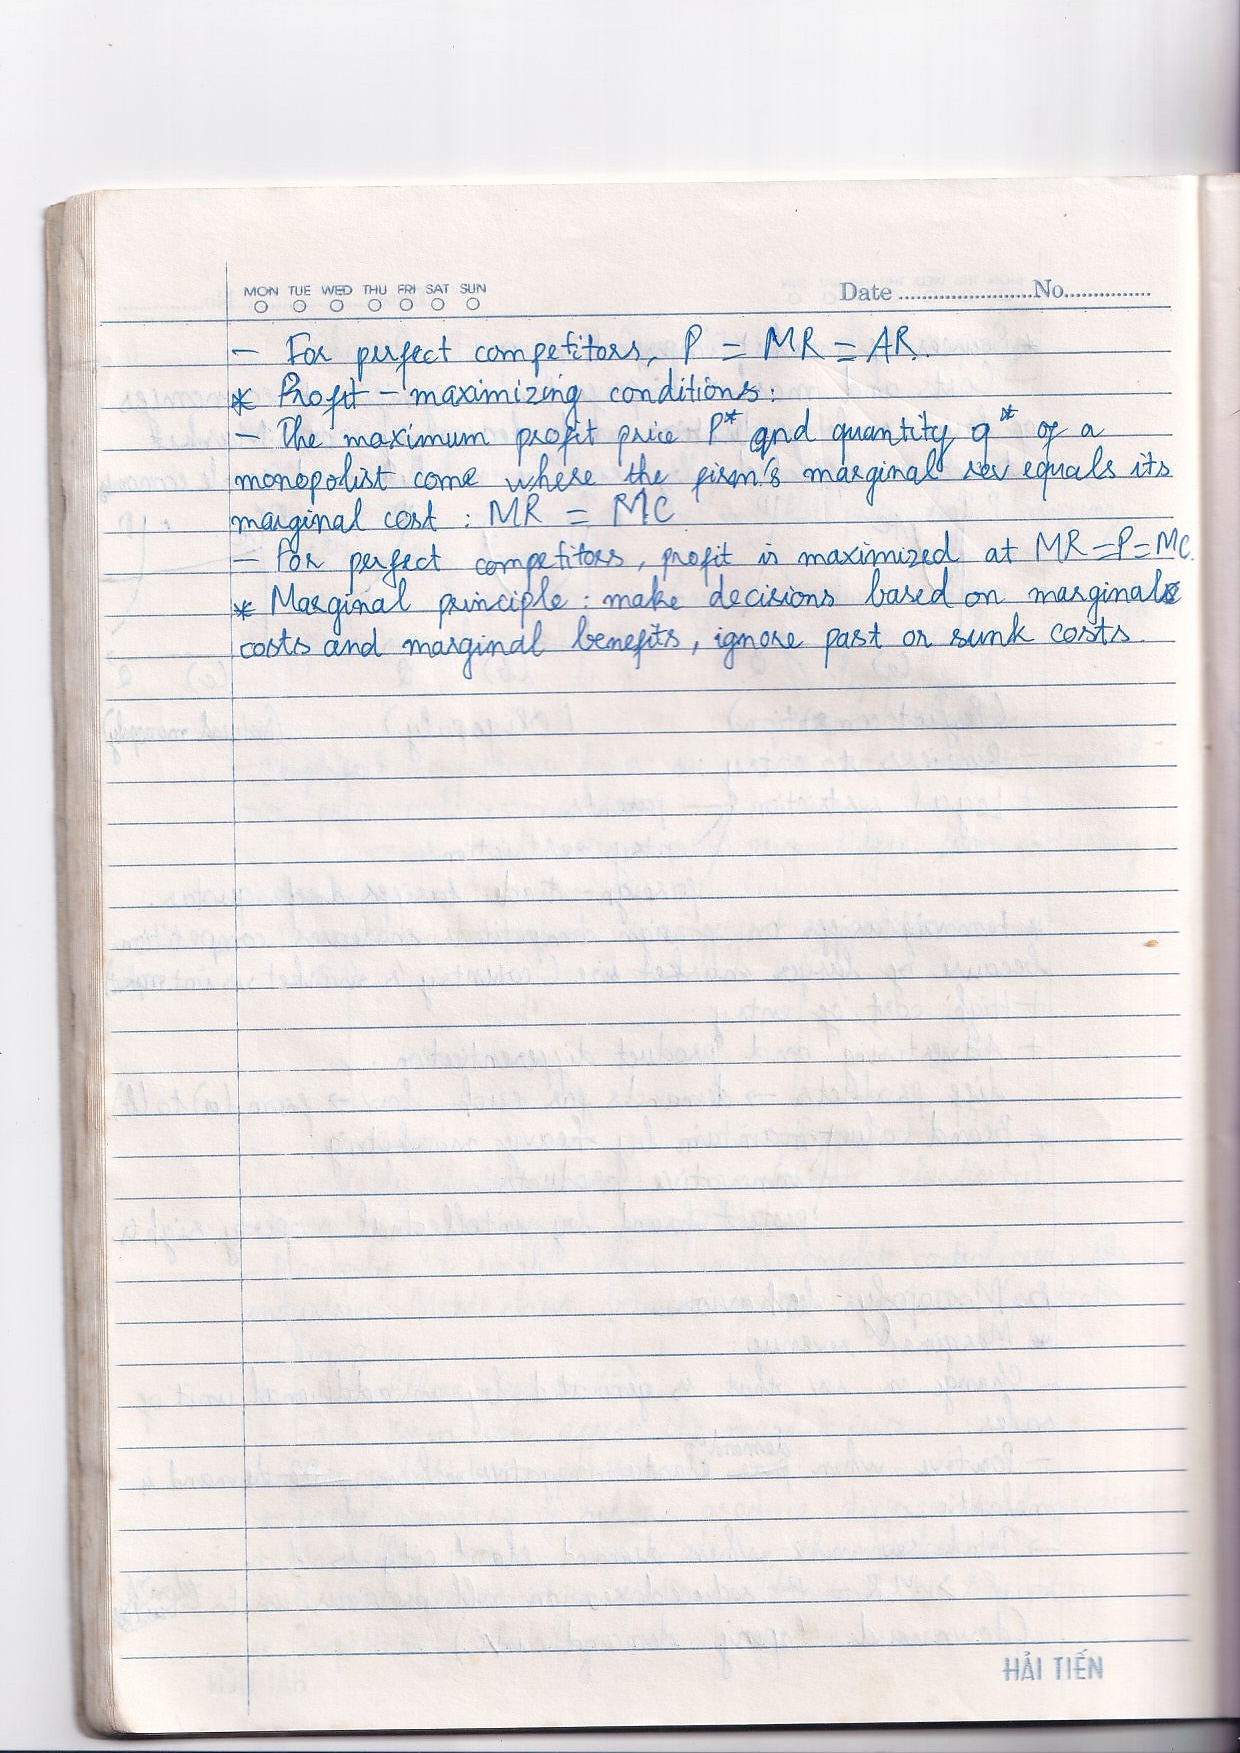 MON TUE WED THU FRI SAT SUN
Date ........................No...............
- For perfect competitors, P = MR = AR.
* Profit - maximizing conditions:
- The maximum profit price P* and quantity q* of a
monopolist come where the firm's marginal rev equals its
marginal cost : MR = MC
- For perfect competitors, profit is maximized at MR=P=MC.
* Marginal principle : make decisions based on marginal
costs and marginal benefits, ignore past or sunk costs.
HẢI TIẾN